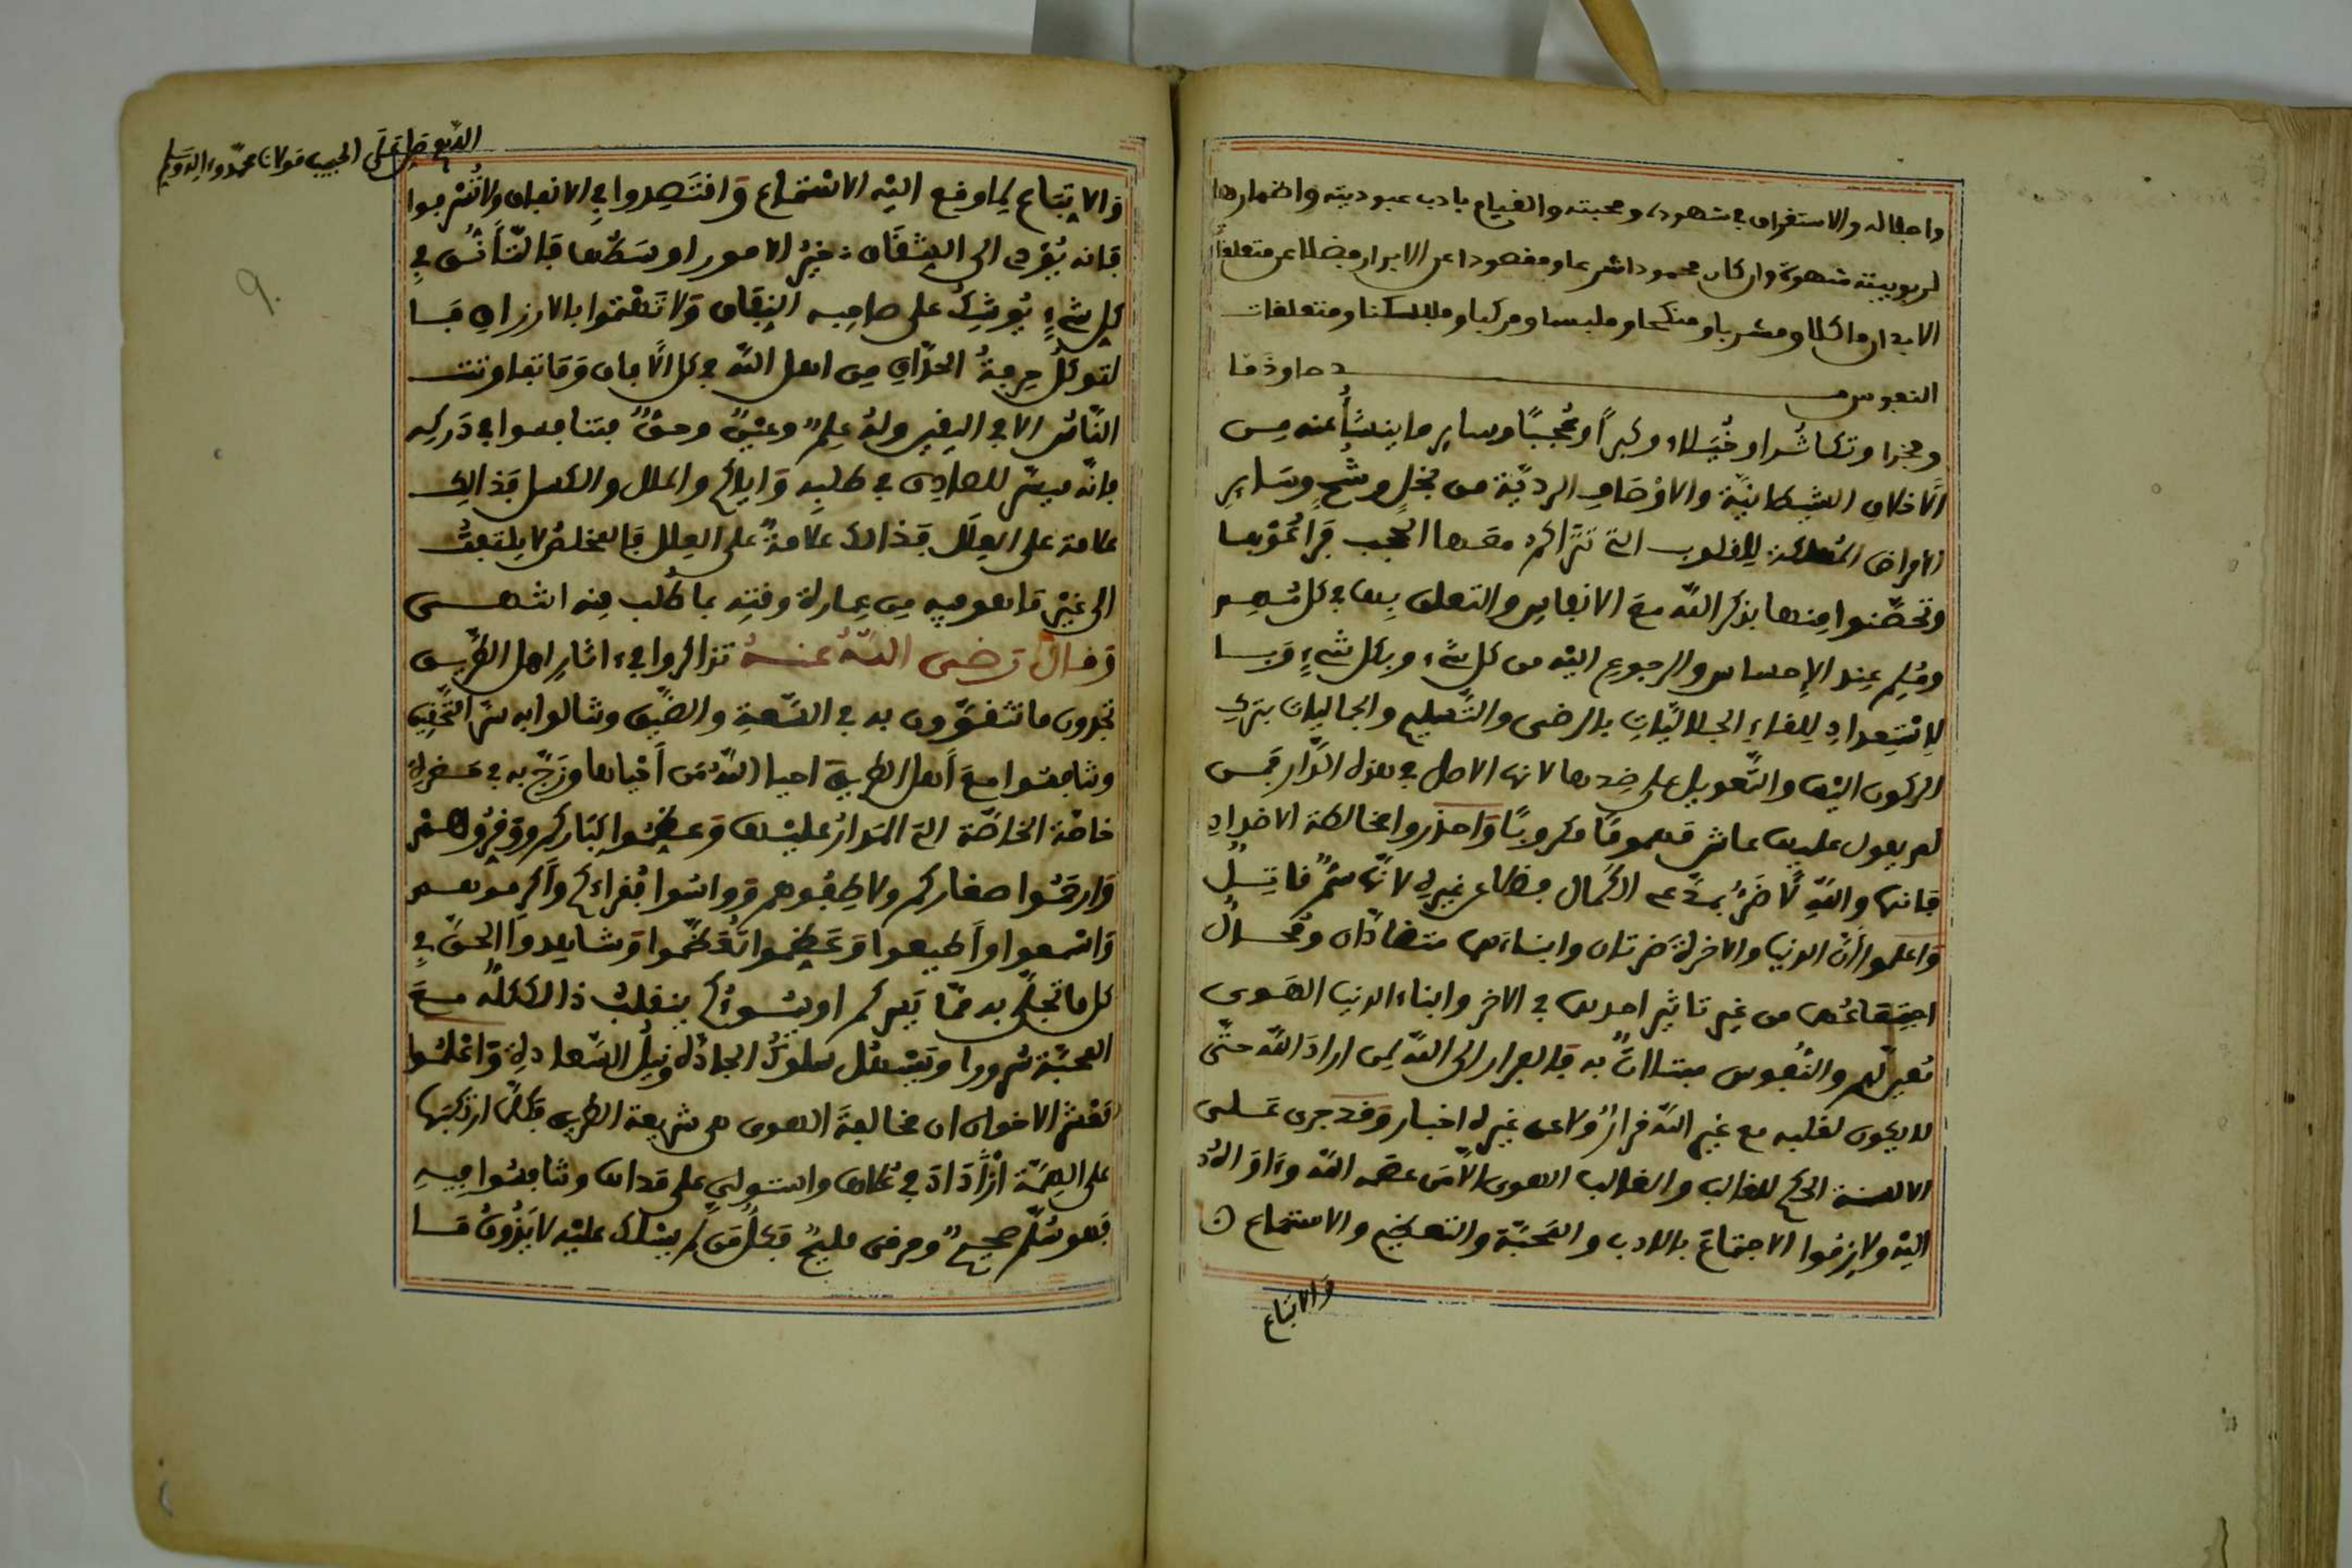 واجلاله والاستغراق في شهوده ومحبته والقيام بادب عبوديته واضمارها
لربوبيته شهوة وان كان محمودا شرعا ومقصودا عن الابرار فضلا عن متعلقا
الابدان ماكلا ومشربا ومنكحا وملبسا ومركبا ومسكنا ومتعلقات
النفوس
وفخرا وتكاثرا وخيلاء وكبرا وعجبا وساير ما ينشأ عنه من
الاخلاق الشيطانية والاوصاف الردية من بخل وشح وساير
الامراض المهلكة للقلوب التي تتراكم معها الحجب
وتحصنوا منها بذكر الله مع الانفاس والتعلق به في كل
عند الاحساس والرجوع اليه من كل شيء وبكل شيء
للقاء الجلاليات بالرضى والتسليم والجماليات بترك
الركون اليها والتعويل على ضدها لانها الاصل في هذه الدار فمن
لم يعول عليها عاش مكروبا واحذروا مخالطة الاضداد
فانها والله لاضر الكمال فضلا عن غيره لانها سم قاتل
واعلموا ان الدنيا والاخرة ضرتان وابناءهما متضادان ومحال
اجتماعهما من غير تاثير احدهما في الاخر وابناء الدنيا الهوى
والنفوس به فالفرار الى الله لمن اراد الله حتى
لا يكون لقلبه مع غير الله قرار ولا عن غيره اخبار وقد جرى على
الالسنة الحكم للغالب والغالب الهوى الا من عصمه الله وءاواه
اليه ولازموا الاجتماع بالادب والمحبة والتعظيم والاستماع
والاتباع
اللهم صل على الحبيب مولانا محمد وءاله وسلم
والاتباع لما وقع اليه الاستماع واقتصدوا في الانفاق ولا تسرفوا
فانه يؤدي الى الشقاق خير الامور اوسطها فالتأنس في
كل شيء يورث على صاحبه النفاق ولا تهتموا بالارزاق
لتوكل حرفة الحذاق من اهل الله في كل الافاق وما تفاوتت
الناس الا في اليقين وله علم وعين وحق فتنافسوا في دركه
فانه ميسر للصادق في طلبه واياكم والملل والكسل فذالك
علامة على العلل فذالك علامة على العلل فالمخلص لا يلتفت
الى غير ما هو فيه من عمارة وقته بما طلب منه انتهى
وقال رضي الله عنه تذاكروا في ءاثار اهل الطريق
تجدون ما تنفقون به في السعة والضيق
مع اهل الطريقة احيا الله من احياها وزج به في حضرة
خاصة الخاصة التي المدار عليها وعظموا كباركم ووقروهم
وارحموا صغاركم ولاطفوهم وواسوا فقراءكم واكرموهم
واسمعوا واطيعوا وعظموا تعظموا وشاهدوا الحق في
كل ما تجلى به مما يسركم او يسوءكم ينقلب ذالك كله مع
المحبة سرورا ويسهل سلوك الجادة ونيل السعادة واعلموا
معشر الاخوان ان مخالفة الهوى هي شريعة الطريق
على الهمة في علاها واستولى على مداها
فهو سلم صحيح ومرقى مليح فكل من لم يسلك عليه لا يذوق